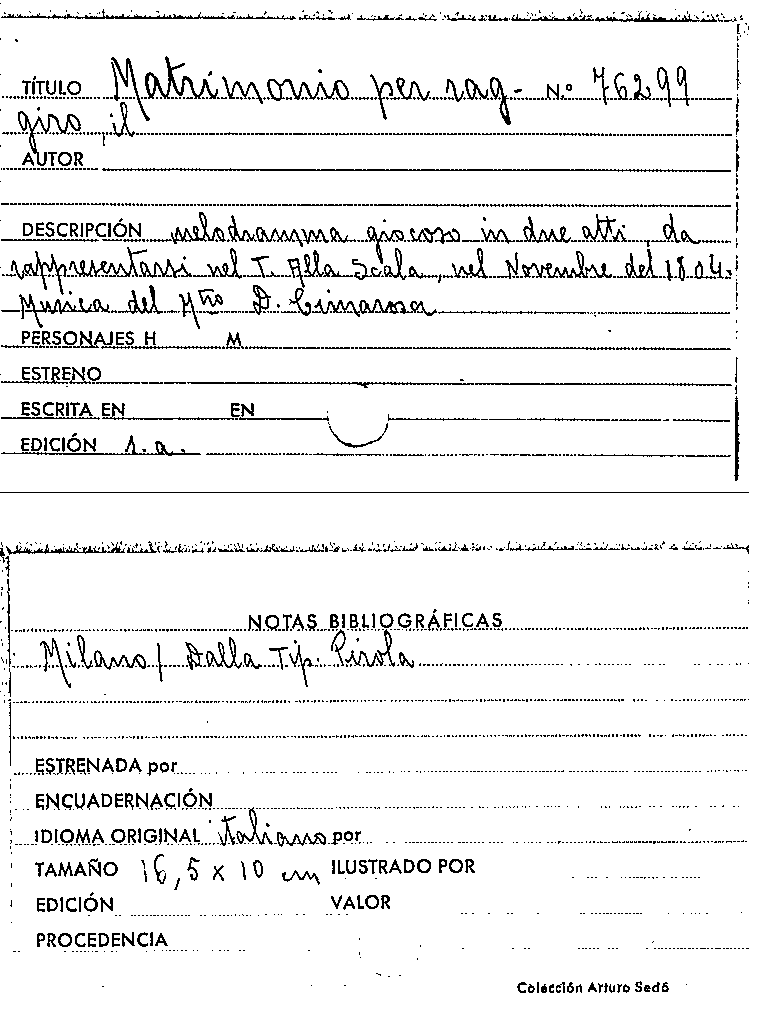 TÍTULO Matrimonio per rag- N.º 76299
giro, il
AUTOR
DESCRIPCIÓN melodramma giocoso in due atti, da
rappresentarsi nel T. Alla Scala, nel Novembre del 1804.
Musica del Mtro D. Cimarosa
PERSONAJES H M
ESTRENO
ESCRITA EN EN
EDICIÓN s.a.
NOTAS BIBLIOGRÁFICAS
Milano / Dalla Tip. Pirola
ESTRENADA por
ENCUADERNACIÓN
IDIOMA ORIGINAL italiano por
TAMAÑO 16,5 x 10 cm ILUSTRADO POR
EDICIÓN VALOR
PROCEDENCIA
Colección Arturo Sedó